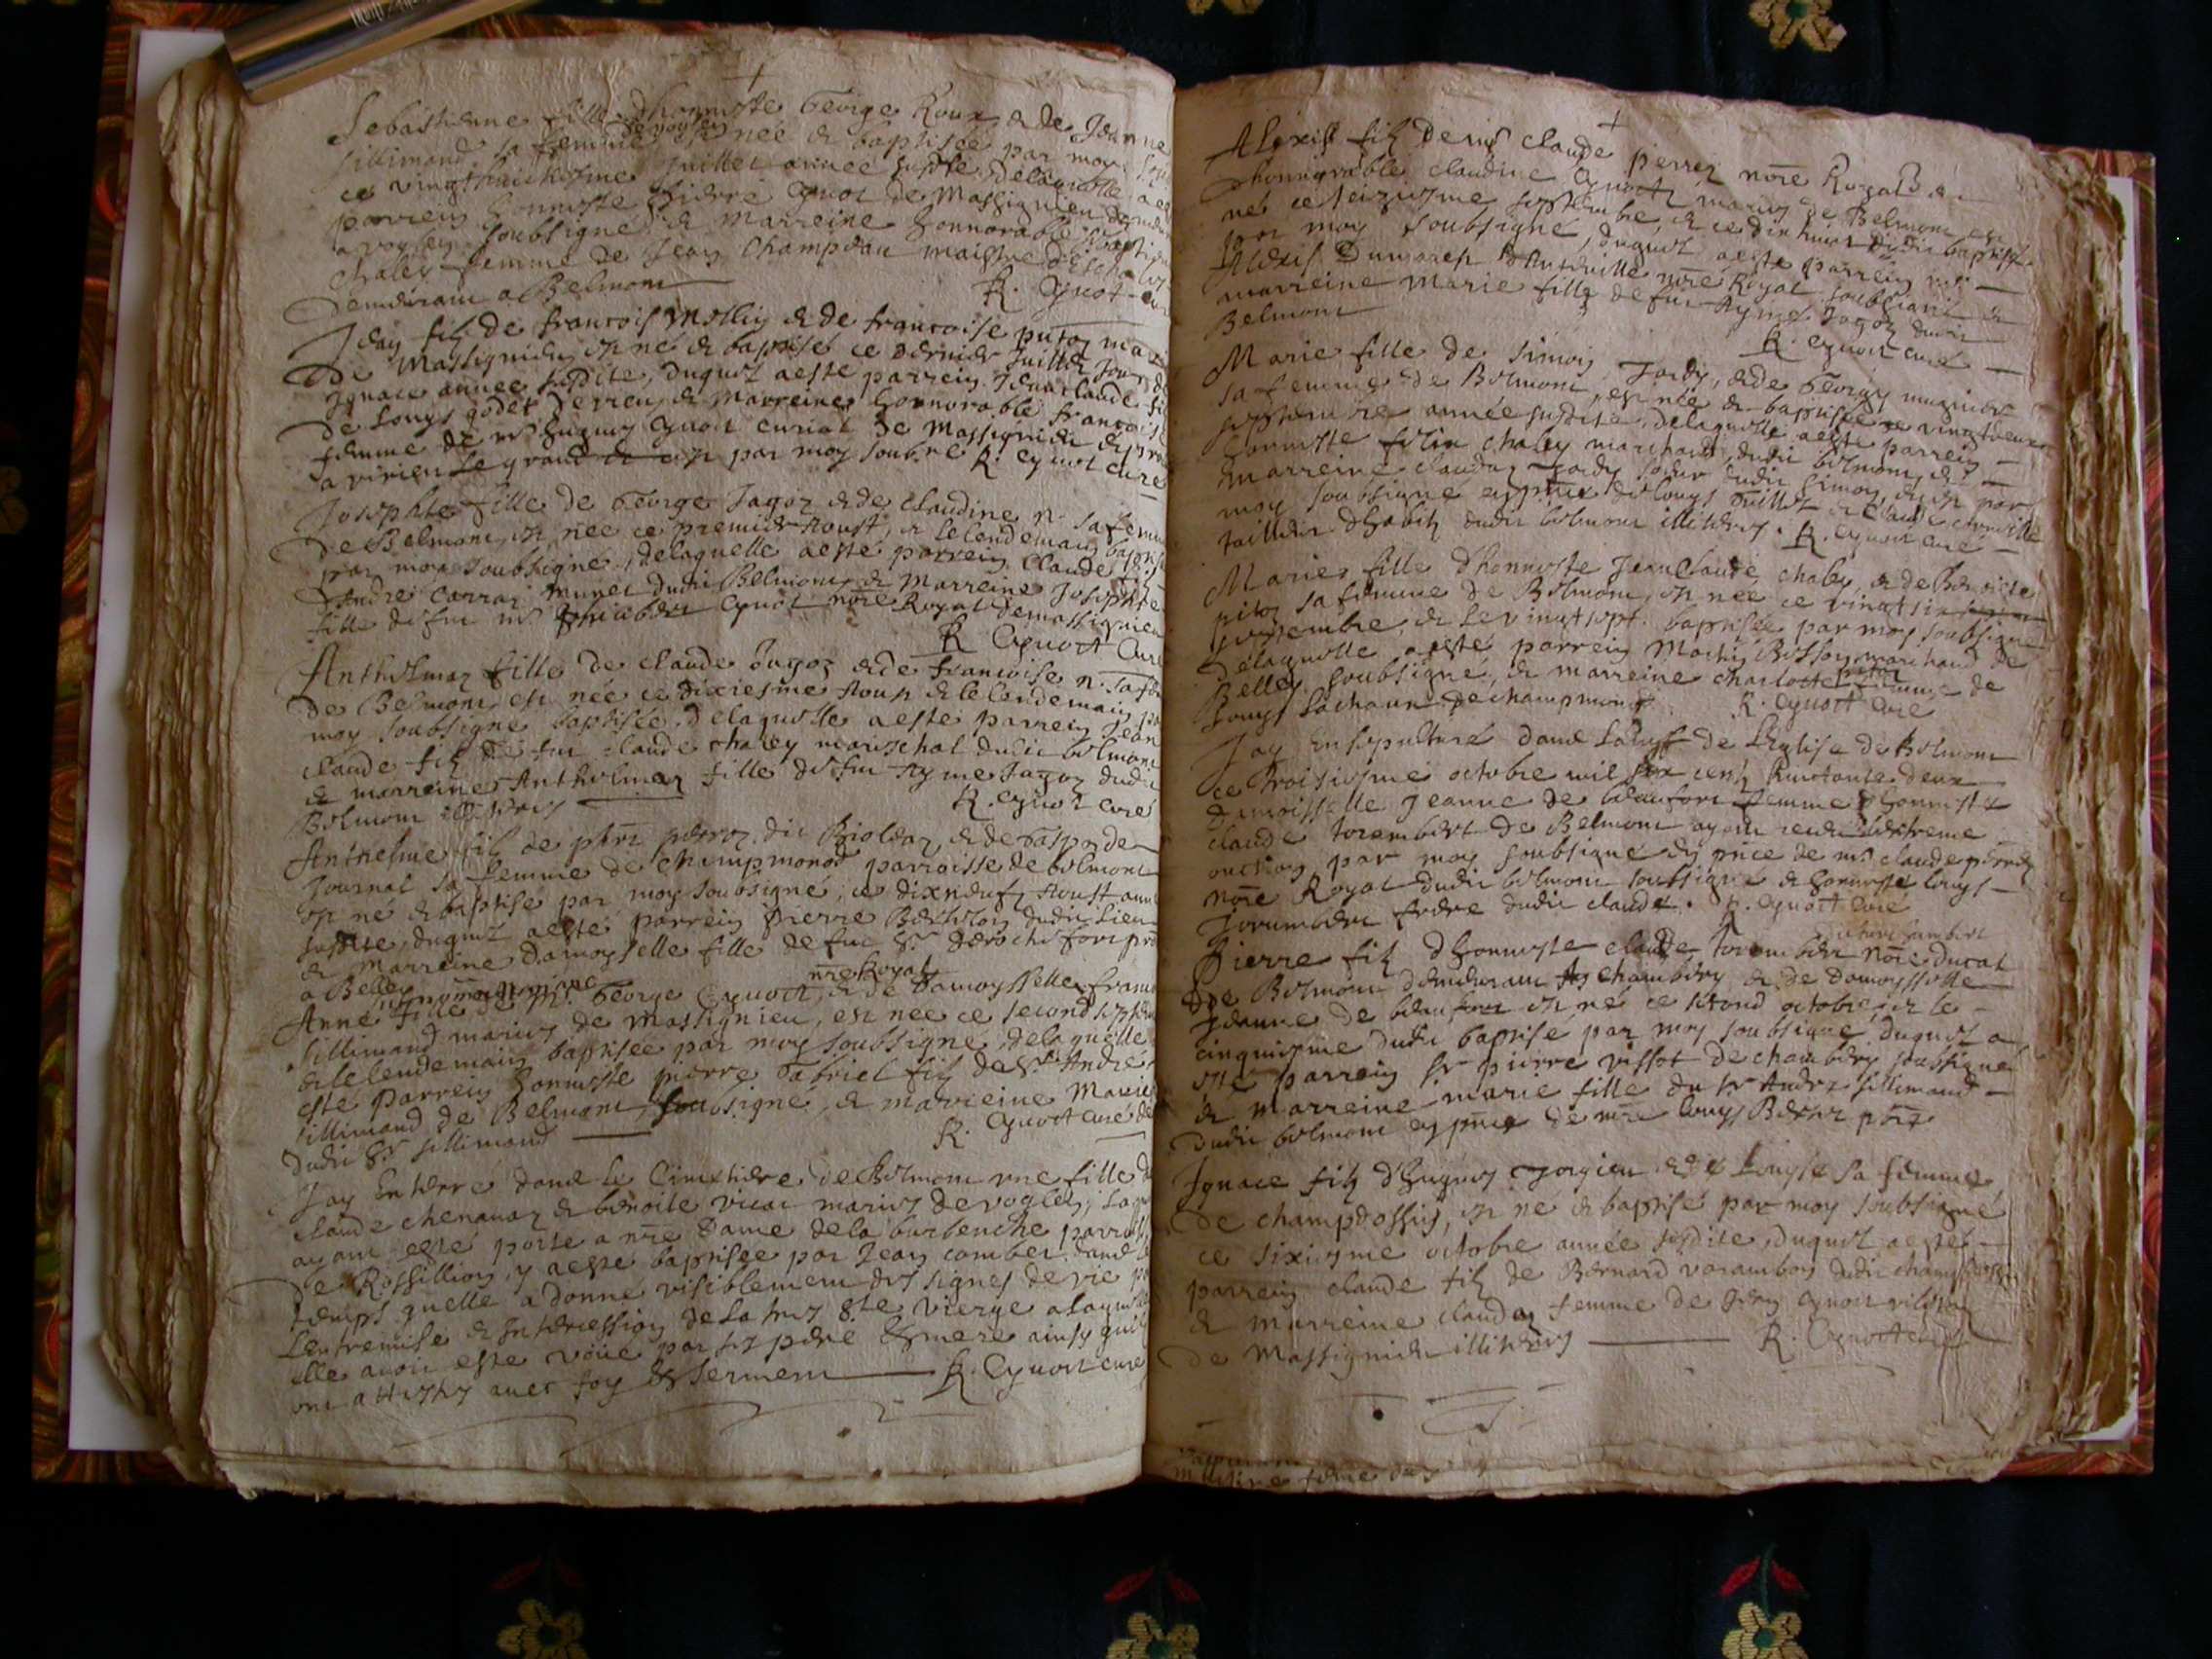 Sebastienne fille d'honneste George Roux & de Jeanne
Sillimand sa femme de voglen est née & baptisée par moy
ce vingthuictiesme Juillet année susdte, delaquelle a esté
parrein honneste Pierre Cynot de Massignieu demeurant
a voglen soubsigné, & Marreine honnorable
Chaley femme de Jean Champdau maistre d'escholle
demeurant a Belmont
R. Cynot curé
Jean filz de francois Mollin & de francoise puton mariés
De Massignieu est né & baptisé ce dernier Juillet Jour de
Ignace année susdite, duquel a esté parrein Jean claude filz
de Louys godet & Marreine honnorable francoise
femme de mr hugues Cynot curial de Massignieu
a virieu le grand & par moy soubné R. Cynot curé
Josephte fille de George Jagoz & de Claudine n. sa femme
De Belmont, est née ce premier Aoust, & le lendemain baptisée
par moy soubsigné, delaquelle a esté parrein Claude filz
d'André Carraz munet dudit Belmont & Marreine Josephte
fille de feu mr philibert Cynot nore Royal de massignieu
R Cynot Curé
Anthelmaz fille de claude Jagoz & de francoise n. sa feme
De Belmont, est née ce dixiesme Aoust & le lendemain par
moy soubsigné baptisée, delaquelle a esté parrein Jean
claude filz de feu claude chaley mareschal dudit belmont
& marreine Anthelmaz fille de feu Ayme Jagoz dudit
Belmont illiterés
R. Cynot curé
Anthelme filz de phért perroz dit Biolleaz & de gasparde
Journal sa femme de champmonod parroisse de belmont
est né & baptisé par moy soubsigné, ce dixneufz Aoust année
susdite, duquel a esté parrein Pierre Berthelon dudit lieu
& Marreine damoyselle fille de feu Sr derochefort
a Belley
nre Royal
Anne fille de Mr. George Cynot & de damoyselle franc
Sillimand mariés de Massignieu, est née ce second
& le lendemain baptisée par moy soubsigné, delaquelle
esté parrein honneste pierre Gabriel filz de Sr André
Sillimand de Belmont, soubsigné, & marreine Marie
dudit Sr Sillimand
R. Cynot curé
Jay Enterré dans le Cimetiere de Belmont une fille de
claude chenavaz & benoite vicat mariés de voglen, laquelle
ayant esté porté a nre Dame de la burbenche parroisse
de Rossillion, y a esté baptisée par Jean combet, dans le
temps quelle a donné visiblement des signes de vie par
l'entremise & Intercession de la tres Ste vierge a laquelle
elle avoit esté voüé par ses pere & mere ainsy quilz
ont attesté avec foy & serment R. Cynot curé
Alexis filz De mr claude perret nore Royal &
d'honnorable claudine Cynot mariés de Belmont est
né ce seiziesme septembre, & ce dixhuict dudit baptisé
par moy soubsigné, duquel a esté parrein mr
Alexis Dumarest d'Anteville nore Royal soubsigné &
marreine Marie fille de feu Ayme Jagoz dudit
Belmont
R. Cynot curé
Marie fille de Simon Jordy, & de George mugnier
sa femme de Belmont, est née & baptisée ce vingtdeux
septembre année susdite, delaquelle a esté parrein
honneste felix chaley marchand dudit belmont, &
marreine claudaz Jordy soeur dudit simon, & par
moy soubsigné en pnce de louys guillot & claude
tailleur d'habitz dudit belmont illiterés. R. Cynot curé
Marie fille d'honneste Jean Claude chaley, & de Benoiste
piton sa femme de Belmont, est née ce vingtsix
septembre, & le vingtsept baptisée par moy soubsigné
Delaquelle a esté parrein Martin Bosson marchand de
Belley soubsigné, & marreine charlotte femme de
Louys Lachaux de champmonod R. Cynot curé
Jay Ensepulturé dans la nef de L'Eglise de Belmont
ce Troisiesme octobre mil six centz huictante deux
Damoisselle Jeanne de beaufort femme d'honneste
claude torembert de Belmont ayant receu l'extreme
onction par moy soubsigné en pnce de mr claude perret
nore Royal dudit belmont soubsigné & honneste louys
Torrembert frere dudit claude. R. Cynot curé
Pierre filz d'honneste claude torembert nore ducal
De Belmont demeurant a chambery & de damoysselle
Jeanne de beaufort est né ce second octobre, & le
cinquiesme dudit baptisé par moy soubsigné duquel a
esté parrein Sr pierre vissot de chambery soubsigné
& marreine marie fille du Sr André Sillimand
dudit belmont en pnce de mre louys
Ignace filz d'hugues Jorgieu & de Louyse sa femme
de champdossin, est né & baptisé par moy soubsigné
ce sixiesme octobre année susdite, duquel a esté
parrein claude filz de Bernard varambon dudit champdossin
& marreine claudaz femme de Jean Cynot
de Massignieu illiterés R. Cynot curé